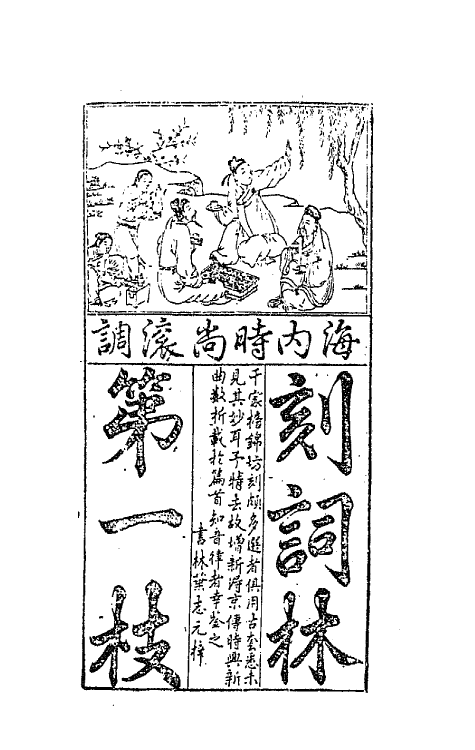 海內時尚滾調
刻詞林
千家摘錦坊刻頗多選者俱用古套悉未
見其妙耳予特去故增新得京傳時興新
曲數折載於篇首知音律者幸鑒之
書林葉志元梓
第一枝